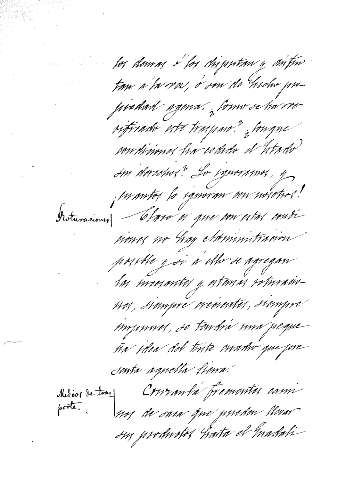 los demas ó los disputan y disfru-
tan á la vez, ó son de hecho pro-
piedad agena. ¿Como se ha ve-
rificado este traspaso? ¿Con que
condiciones ha cedido el Estado
sus derechos? Lo ignoramos, y
¡cuantos lo ignoran con nosotros!
Roturaciones
Claro es que con estas condi-
ciones no hay Administracion
posible y si á ello se agregan
las incesantes y estensas roturacio-
nes, siempre crecientes, siempre
impunes, se tendrá una peque-
ña idea del triste cuadro que pre-
senta aquella Sierra.
Medios de trans
porte.
Cruzanla frecuentes cami-
nos de saca que pueden llevar
sus productos hasta el Guadal-